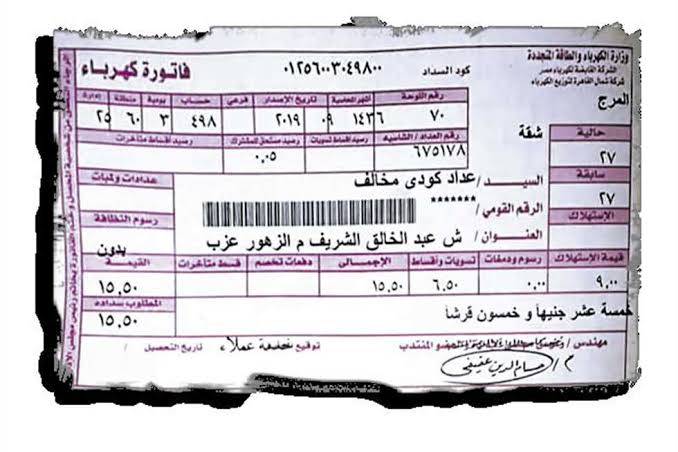 وزارة الكهرباء والطاقة المتجددة
الشركة القابضة لكهرباء مصر
شركة شمال القاهرة لتوزيع الكهرباء
المرج
كود السداد ٠١٢٥٦٠٠٣٠٤٩٨٠٠
فاتورة كهرباء
رقم اللوحة تاريخ الإصدار فرعى حساب يومية منطقة إدارة
٧٠ ١٤٣٦ ٠٩ ٢٠١٩ ٤٩٨ ٣ ٦٠ ٢٥
رقم العداد / الشاسيه رصيد أقساط تسويات رصيد مستحق للمشترك رصيد أقساط متأخرات
٦٧٥١٧٨ ٠.٠٥
شقة
حالية
٢٧
سابقة
٢٧
الإستهلاك
السيد / عداد كودى مخالف
الرقم القومي / *******
العنوان / ش عبد الخالق الشريف م الزهور عزب
عدادات ولمبات
رسوم النظافة
بدون
قيمة الإستهلاك رسوم ودمغات تسويات وأقساط الإجمالى دفعات تخصم قسط متأخرات القيمة
٩.٠٠ ٠.٠٠ ٦.٥٠ ١٥.٥٠ ١٥.٥٠
المطلوب سداده
١٥.٥٠
خمسة عشر جنيهاً و خمسون قرشاً
مهندس / العضو المنتدب
توقيع خدمة عملاء
تاريخ التحصيل /